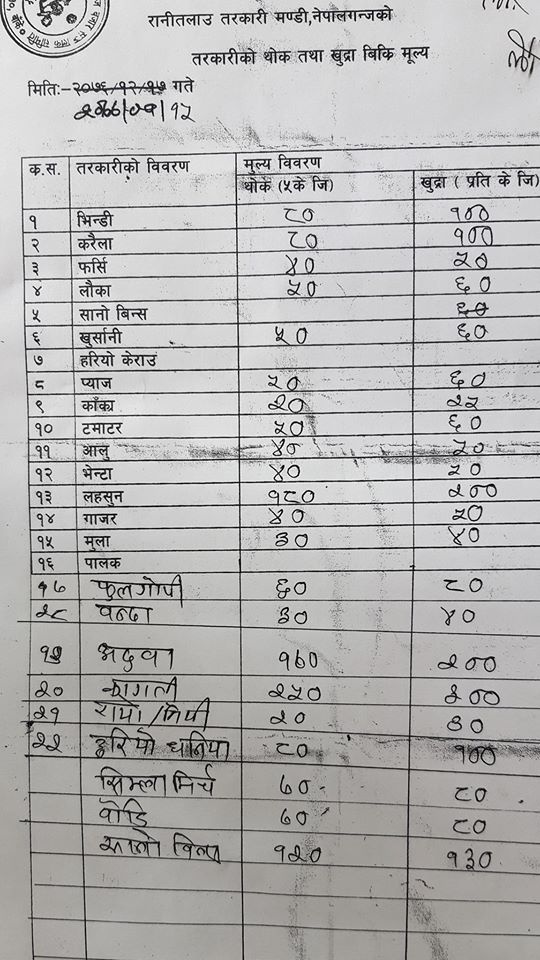 रानीतलाउ तरकारी मण्डी,नेपालगन्जको
तरकारीको थोक तथा खुद्रा बिकि मूल्य
मिति:-२०७६/१२/१७ गते
क.स. तरकारीको विवरण मूल्य विवरण
थोक (५के जि) खुद्रा ( प्रति के जि)
१ भिन्डी ८० १००
२ करैला ८० १००
३ फर्सि ४० ५०
४ लौका ५० ६०
५ सानो बिन्स ६०
६ खुर्सानी ५० ६०
७ हरियो केराउ
८ प्याज ५० ६०
९ काँक्रा २० २५
१० टमाटर ५० ६०
११ आलु ४० ५०
१२ भेन्टा ४० ५०
१३ लहसुन १८० २००
१४ गाजर ४० ५०
१५ मुला ३० ४०
१६ पालक
१७ फुलगोपी ६० ८०
२८ वन्दा ३० ४०
१९ अदुवा १७० २००
२० कागती २५० ३००
२१ रायो/मिपी २० ३०
२२ हरियो धनिया ८० १००
सिम्ला मिर्च ७० ८०
वोडि ७० ८०
सानो विन्स १२० १३०